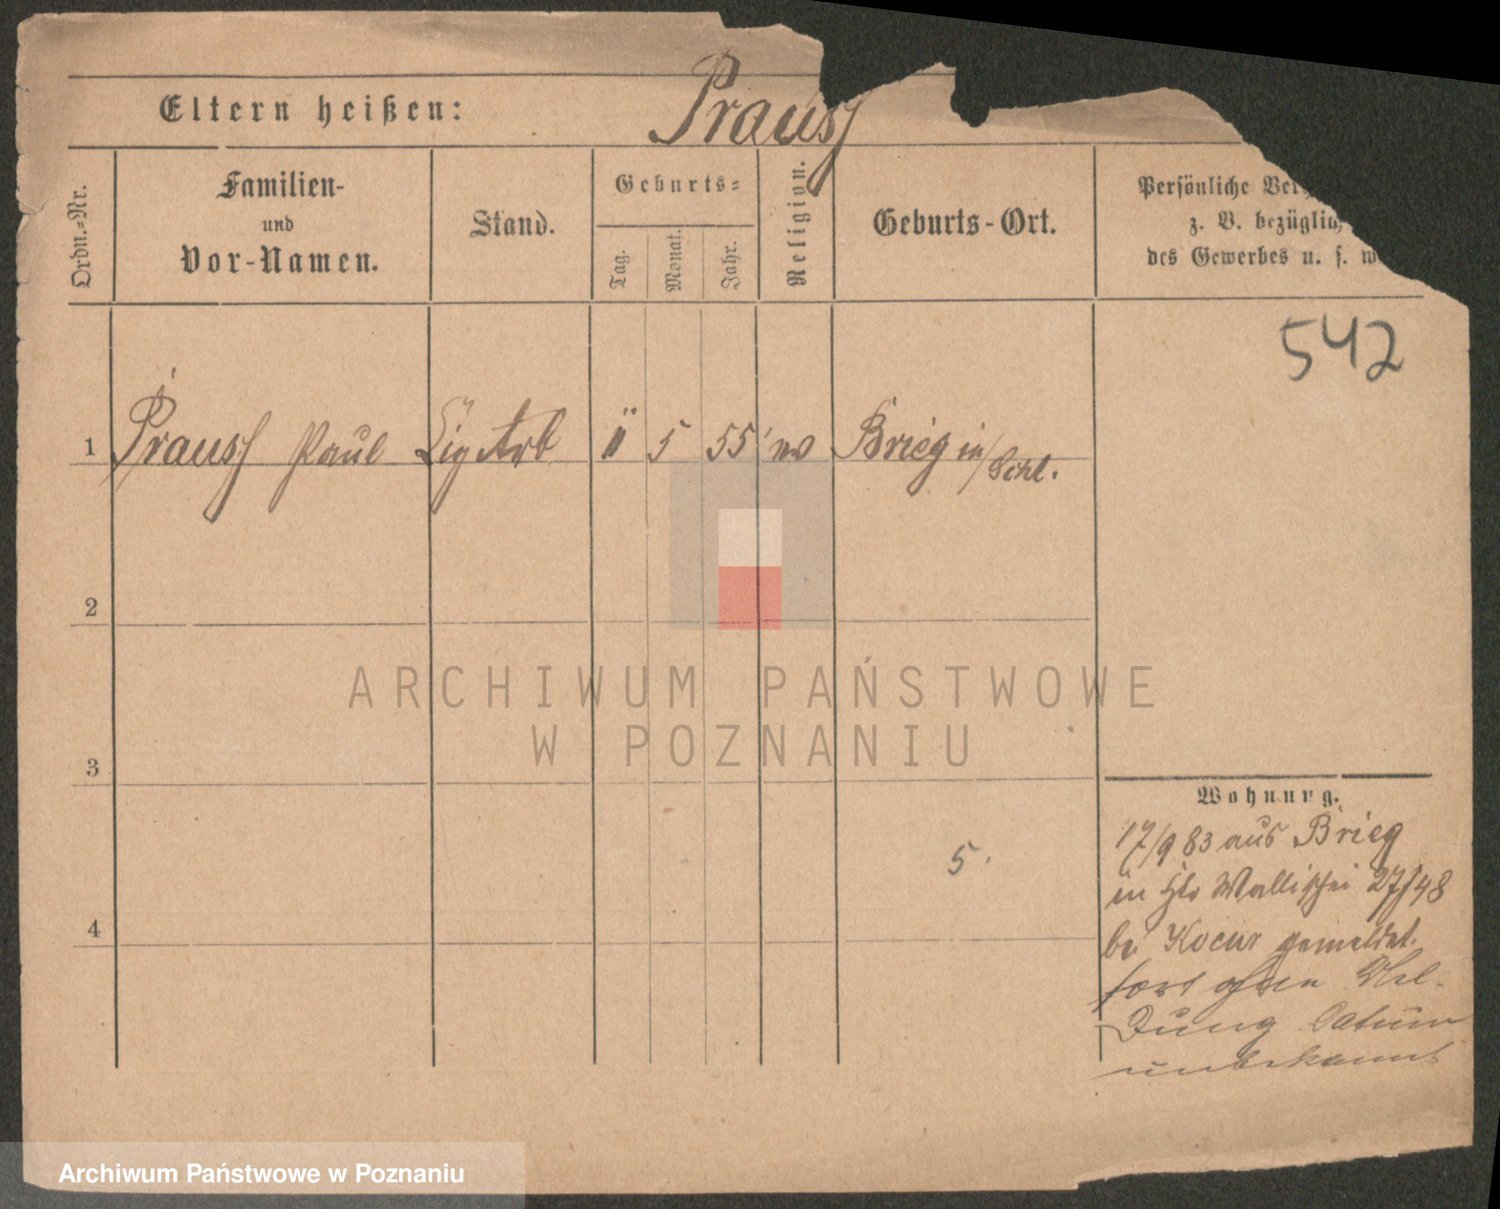 Prausz
Eltern heißen:
Ordn.-Nr.
Familien-
und
Vor-Namen.
Stand.
Geburts-
Tag.
Monat.
Jahr.
Religion.
Geburts-Ort.
Persönliche
z. B.
des Gewerbes u. s. w.
542
1 Prausz Paul Zig Arb 11 5 55 Brieg in/Schl.
2
3
4
5.
Wohnung.
17/9 83 aus Brieg
in Wallischei 27/48
bei Kocur gemeldet.
fort ohne Mel-
dung Datum
unbekannt
ARCHIWUM PAŃSTWOWE
W POZNANIU
Archiwum Państwowe w Poznaniu